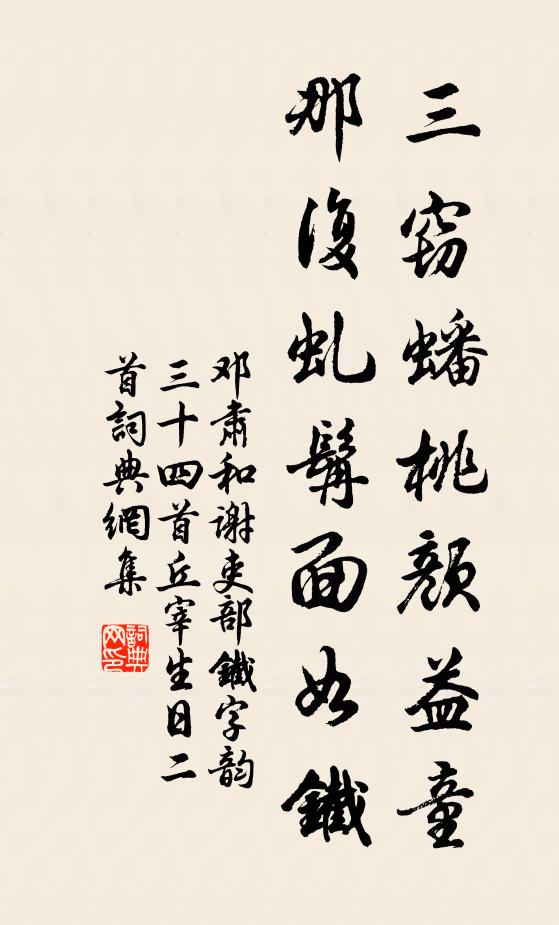 三竊蟠桃顏益童
那復虬髯面如鐵
邓肅和谢吏部鐵字韵
三十四首丘宰生日二
首詞典網集
詞典网印